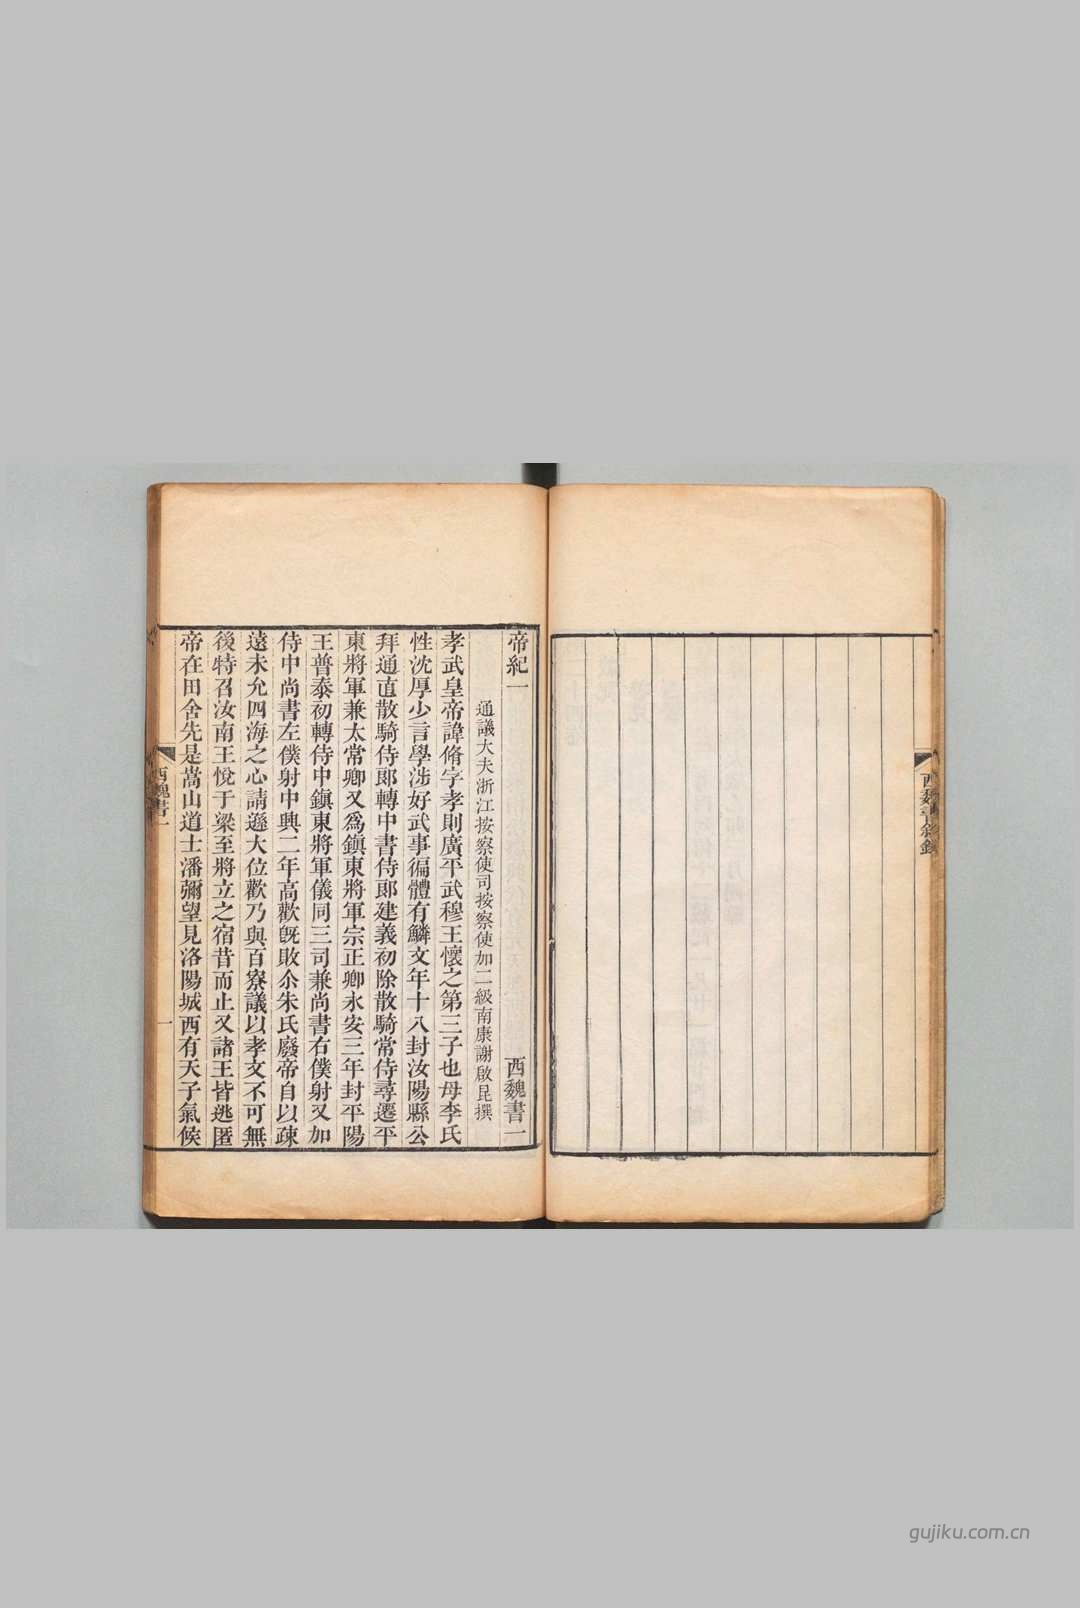 西魏書敘錄
帝紀一　西魏書一
通議大夫浙江按察使司按察使加二級南康謝啟昆撰
孝武皇帝諱脩字孝則廣平武穆王懷之第三子也母李氏
性沈厚少言學涉好武事徧體有鱗文年十八封汝陽縣公
拜通直散騎侍郎轉中書侍郎建義初除散騎常侍尋遷平
東將軍兼太常卿又爲鎭東將軍宗正卿永安三年封平陽
王普泰初轉侍中鎭東將軍儀同三司兼尚書右僕射又加
侍中尚書左僕射中興二年高歡旣敗尒朱氏廢帝自以疎
遠未允四海之心請遜大位歡乃與百寮議以孝文不可無
後特召汝南王悅于梁至將立之宿昔而止又諸王皆逃匿
帝在田舍先是嵩山道士潘彌望見洛陽城西有天子氣候
西魏書一
一
gujiku.com.cn